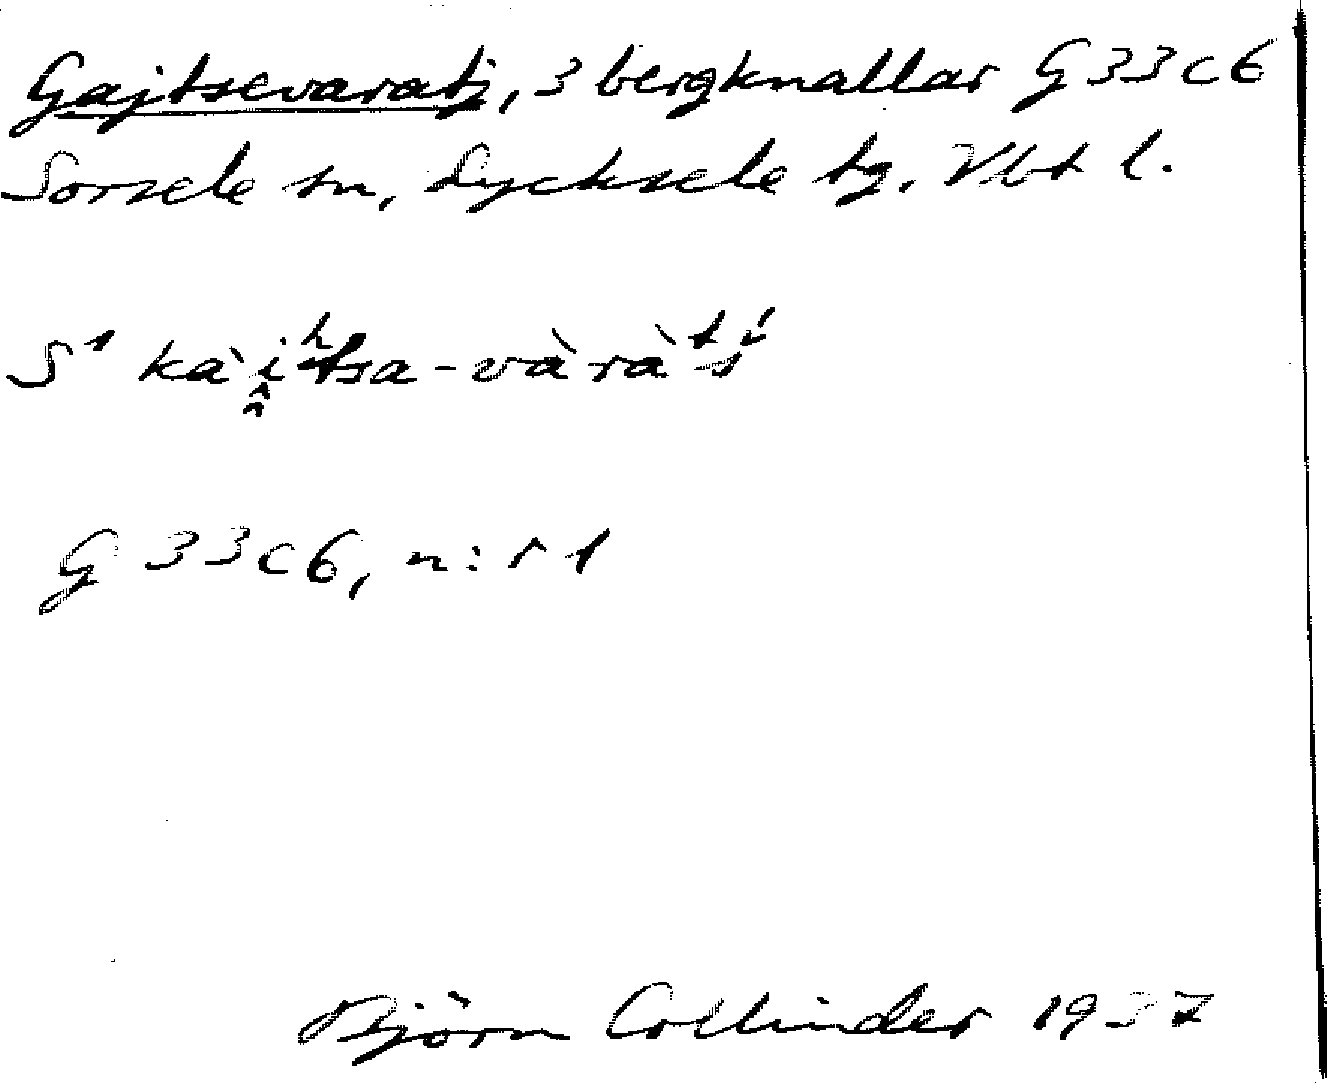 Gajtsevaratj, 3 bergknallar G 33 c 6
Sorsele sn, Lycksele tg. Vbt l.
S¹
G 33 c 6, n:r 1
Björn Collinder 1937